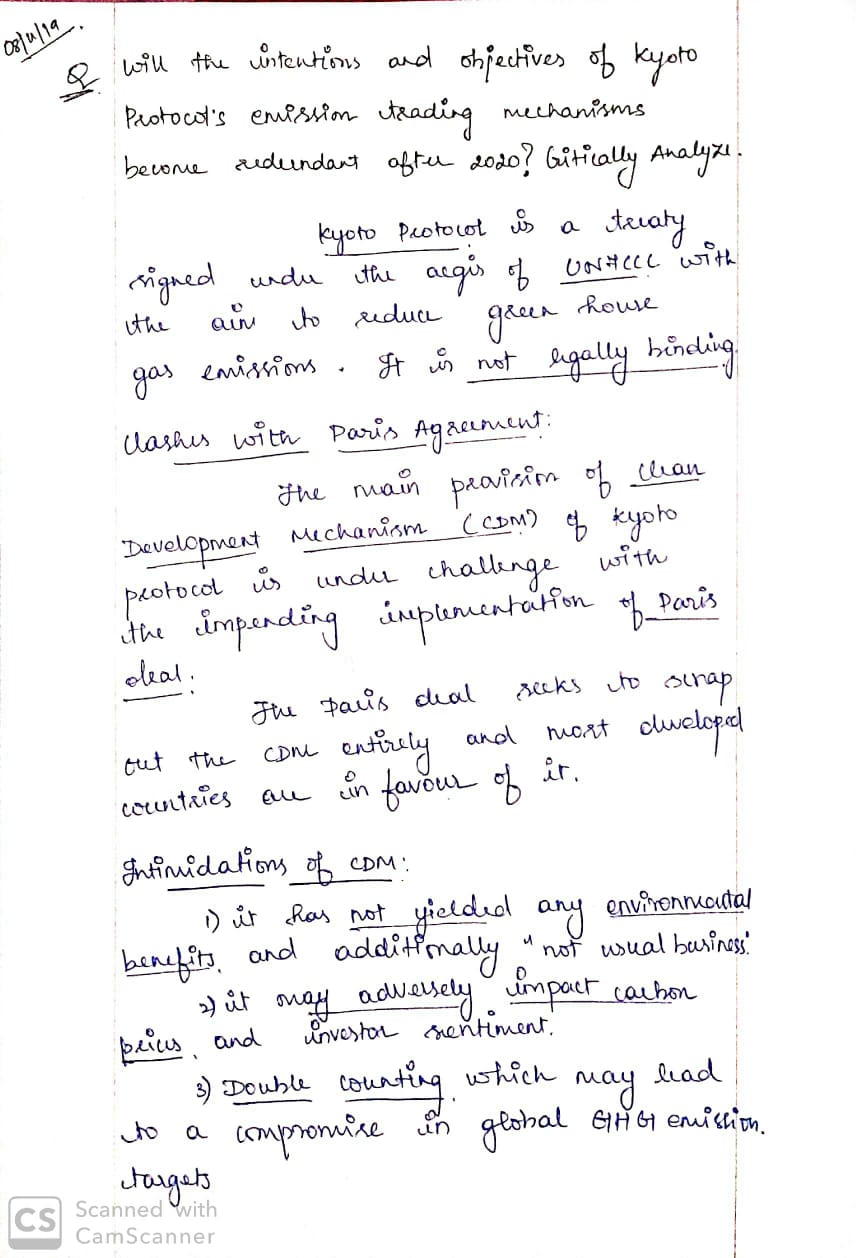 08/11/19.
Q. Will the intentions and objectives of Kyoto
Protocol's emission trading mechanisms
become redundant after 2020? Critically Analyze.
Kyoto Protocol is a treaty
signed under the aegis of UNFCCC with
the aim to reduce green house
gas emissions. It is not legally binding.
Clashes with Paris Agreement:
The main provision of Clean
Development Mechanism (CDM) of Kyoto
protocol is under challenge with
the impending implementation of Paris
deal.
The Paris deal seeks to scrap
out the CDM entirely and most developed
countries are in favour of it.
Intimidations of CDM:
1) it has not yielded any environmental
benefits, and additionally "not usual business".
2) it may adversely impact carbon
prices, and investor sentiment.
3) Double counting, which may lead
to a compromise in global GHG emission.
targets
CS Scanned with
CamScanner